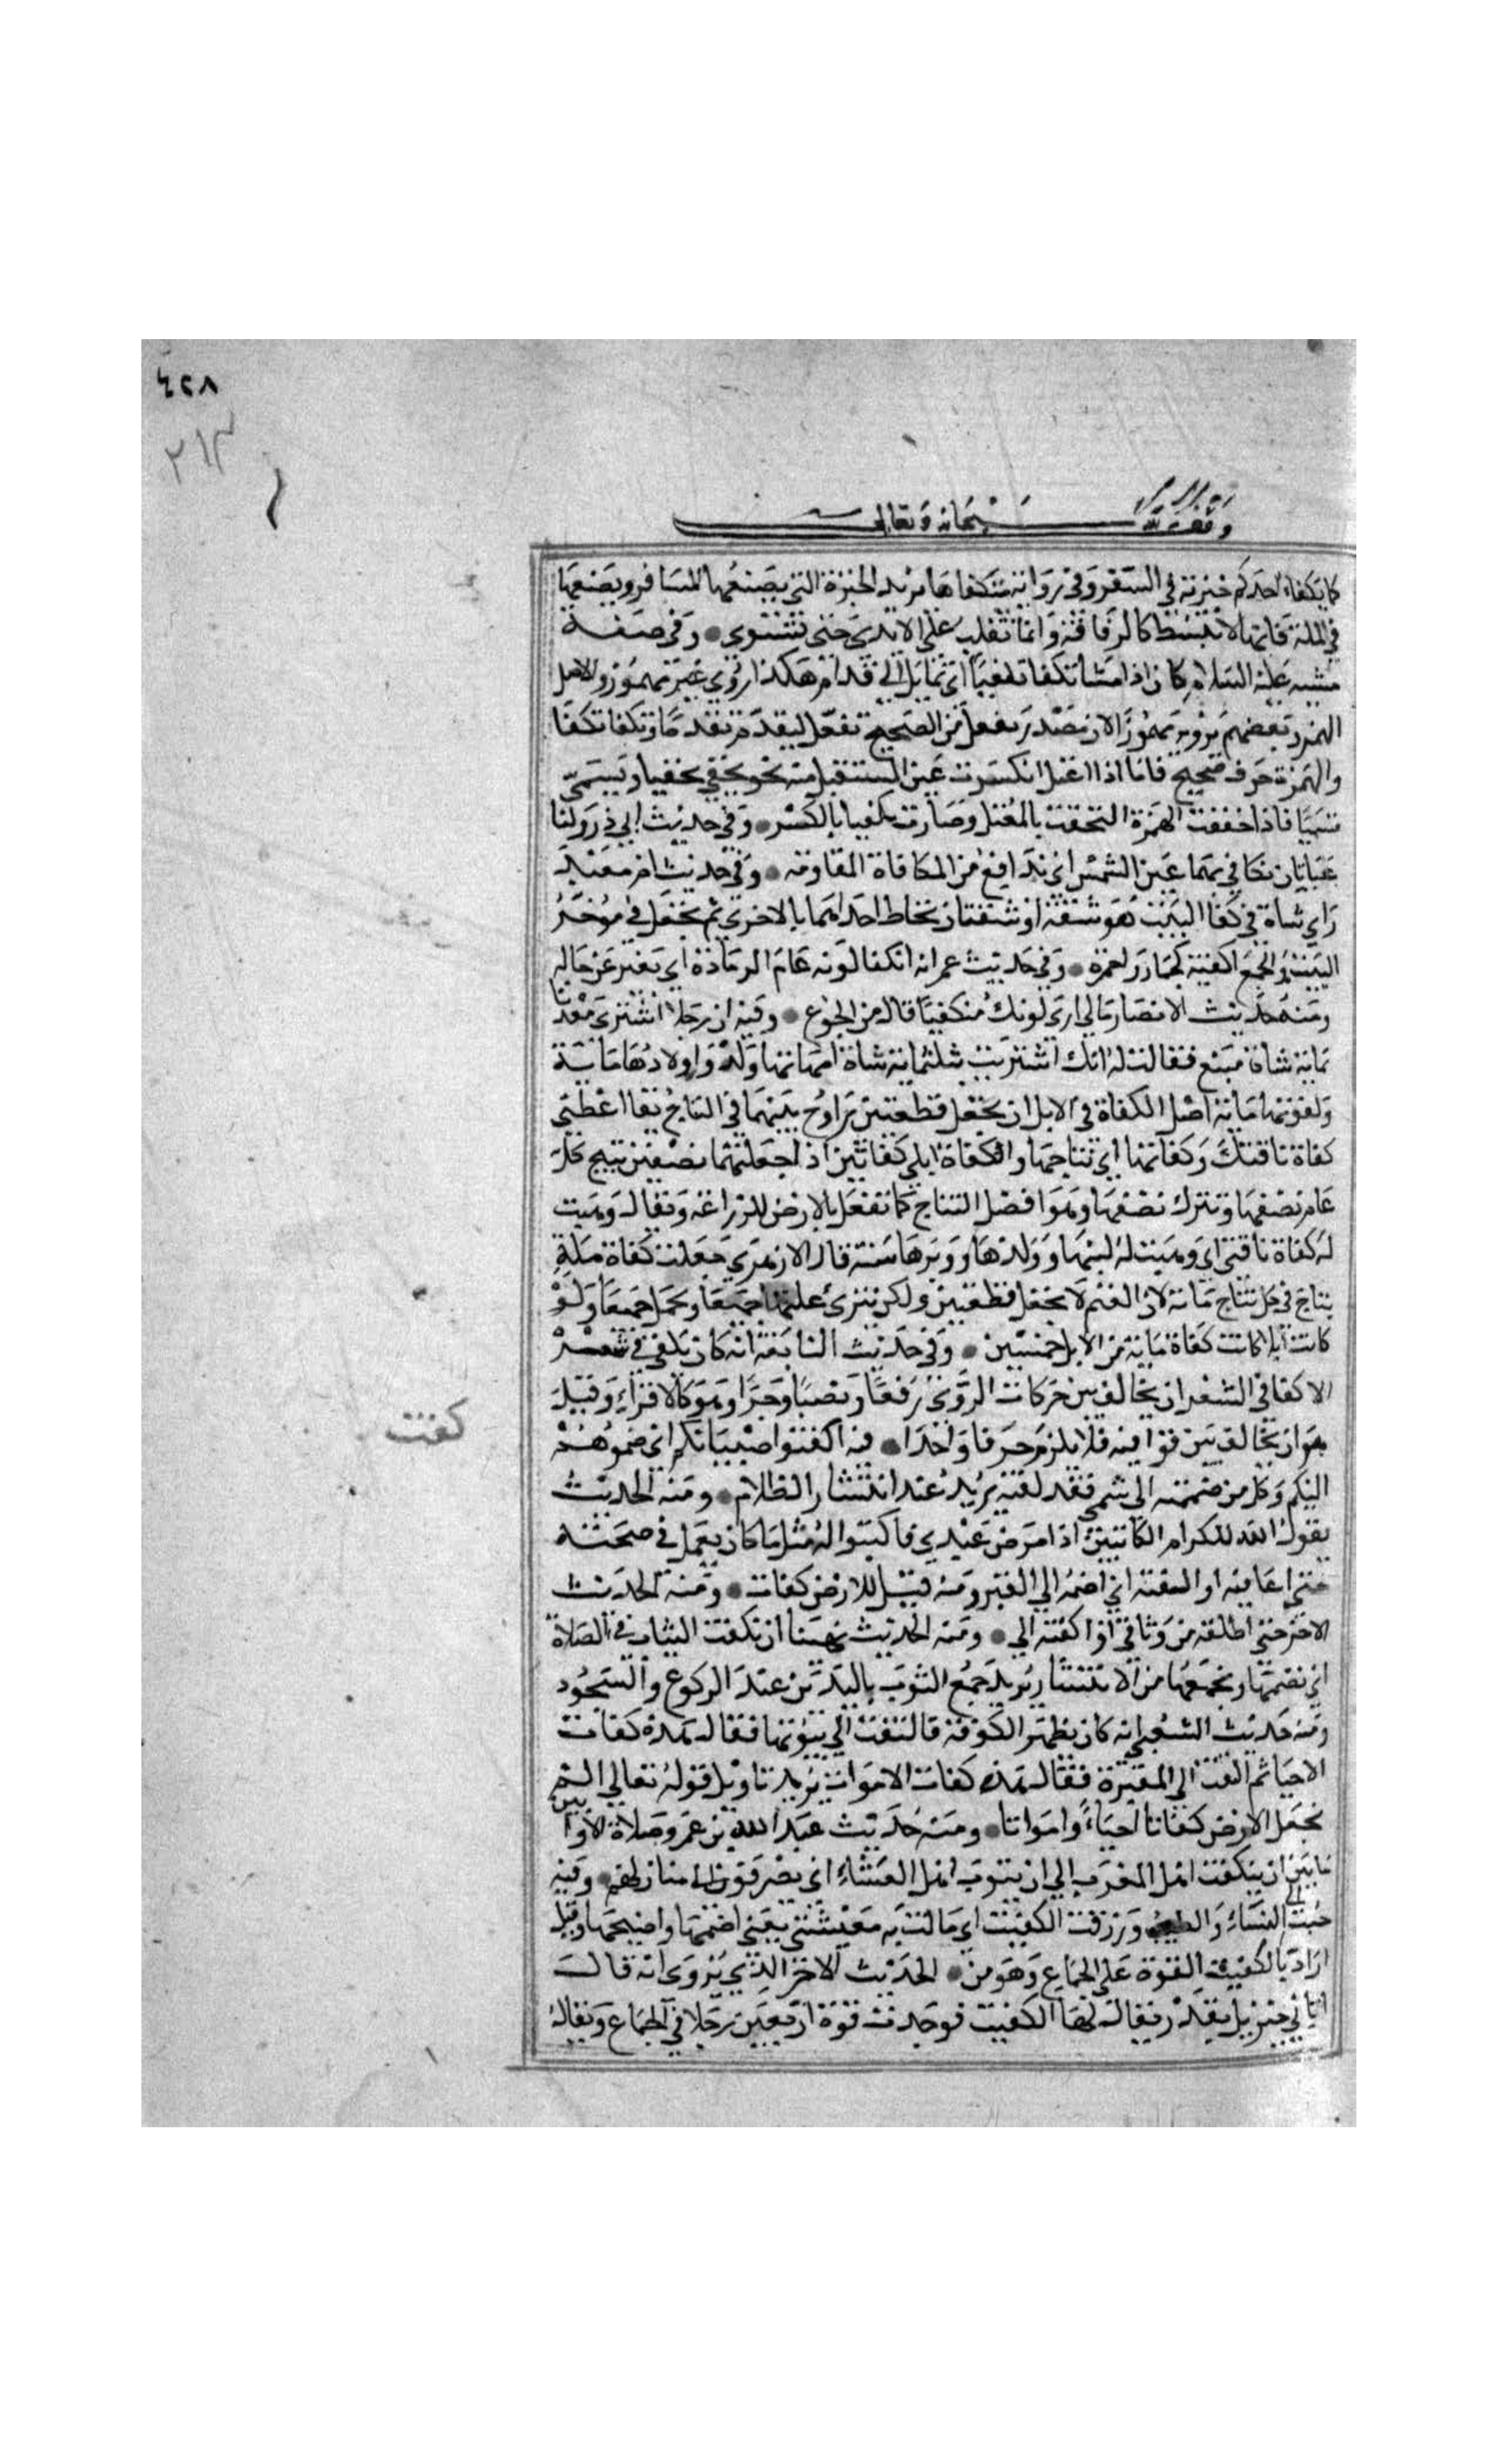 ٤٢٨
٢١٣
وقف لله سبحانه وتعالى
كما يكفاء احدكم خبزته في السفر وفي رواية يتكفاها يريد الخبزة التي يصنعها المسافر ويضعها
في الملة فانها لا تنبسط كالرقاقة وانما تقلب على الايدي حتى تستوي وفي صفة
مشيه عليه السلام كان اذا مشا تكفا تكفيا اي تمايل الي قدام هكذا روي غير مهموز والاصل
الهمز وبعضهم يرويه مهموزا لان مصدر تفعل من الصحيح تفعل ليقدم تقدما وتكفا تكفا
والهمزة حرف صحيح فاما اذا اعتل انكسرت عين المستقبل منه نحو تخفي تخفيا وتسمى
تسميا فاذا خففت الهمزة التحقت بالمعتل وصارت تكفيا بالكسر وفي حديث ابي ذر ولنا
عباتان نكافي بهما عين الشمس اي ندافع من المكافاة المقاومة وفي حديث ام معبد
راي شاة في كفا البيت هو شقة او شقتان تخاط احداهما بالاخري ثم تجعل في موخر
البيت والجمع اكفية كحمار واحمرة وفي حديث عمر انه انكفا لونه عام الرمادة اي تغير عن حاله
ومنه حديث الانصار مالي اري لونك منكفيا قال من الجوع وفيه ان رجلا اشتري معدنا
بماية شاة متبع فقالت له امك اشتريت بثلثماية شاة امهاتها ماية واولادها ماية
وكفوتها ماية اصل الكفاة في الابل ان تجعل قطعتين تراوح بينهما في النتاج يقا اعطني
كفاة ناقتك وكفاتها اي نتاجها واكفات ابلي كفاتين اذ جعلتهما نصفين ينتج كل
عام نصفها ويترك نصفها وهو افضل النتاج كما تفعل بالارض للزراعة ويقال وهبت
له كفاة ناقتي اي وهبت له لبنها وولدها ووبرها سنة قال الازهري جعلت كفاة مية
نتاج في كل نتاج ماية لان الغنم لا تجعل قطعتين ولكن ينزي عليها جميعا وتحمل جميعا ولو
كانت ابلا كانت كفاة ماية من الابل خمسين وفي حديث النابغة انه كان يكفي في شعره
الاكفا في الشعر ان يخالف بين حركات الروي رفعا ونصبا وجرا وهو كالاقواء وقيل
هو ان يخالف بين قوافيه فلا يلزم حرفا واحدا فيه اكفتوا صبيانكم اي ضموهم
كفت
اليكم وكل من ضممته الى شي فقد كفته يريد عند انتشار الظلام ومنه الحديث
يقول الله للكرام الكاتبين اذا مرض عبدي فاكتبوا له مثل ما كان يعمل في صحته
حتي اعافيه او اكفته اي اضمه الي القبر ومنه قيل للارض كفات ومنه الحديث
الاخر حتي اطلقه من وثاقي او اكفته الي ومنه الحديث نهينا ان نكفت الثياب في الصلاة
اي نضمها ونجمعها من الانتشار يريد جمع الثوب باليدين عند الركوع والسجود
ومنه حديث الشعبي انه كان بظهر الكوفة فالتفت الي بيوتها فقال هذه كفات
الاحيا ثم التفت الى المقبرة فقال هذه كفات الاموات يريد تاويل قوله تعالي الم
نجعل الارض كفاتا احياء وامواتا ومنه حديث عبد الله بن عمرو صلاة الاوابين
ما بين ان ينكفت اهل المغرب الي ان يثوب اهل العشاء اي ينصرفون الى منازلهم وفيه
حبب الي النساء والطيب ورزقت الكفيت اي ما اكفت به معيشتي يعني اضمها واصلحها وقيل
اراد بالكفيت القوة على الجماع وهو من الحديث الاخر الذي يروى انه قال
اتاني جبريل بقدر يقال لها الكفيت فوجدت قوة اربعين رجلا في الجماع ويقال